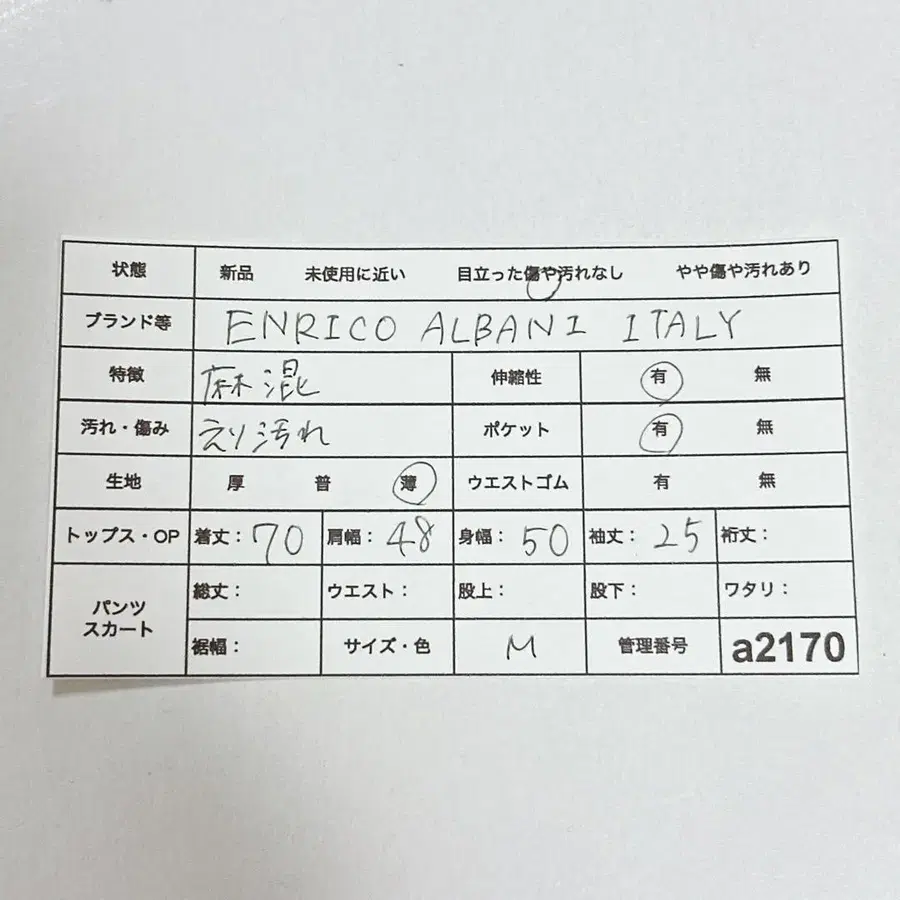 状態 新品 未使用に近い 目立った傷や汚れなし やや傷や汚れあり
ブランド等 ENRICO ALBANI ITALY
特徴 麻混 伸縮性 有 無
汚れ・傷み えり汚れ ポケット 有 無
生地 厚 普 薄 ウエストゴム 有 無
トップス・OP 着丈：70 肩幅：48 身幅：50 袖丈：25 裄丈：
パンツ スカート 総丈： ウエスト： 股上： 股下： ワタリ：
裾幅： サイズ・色 M 管理番号 a2170